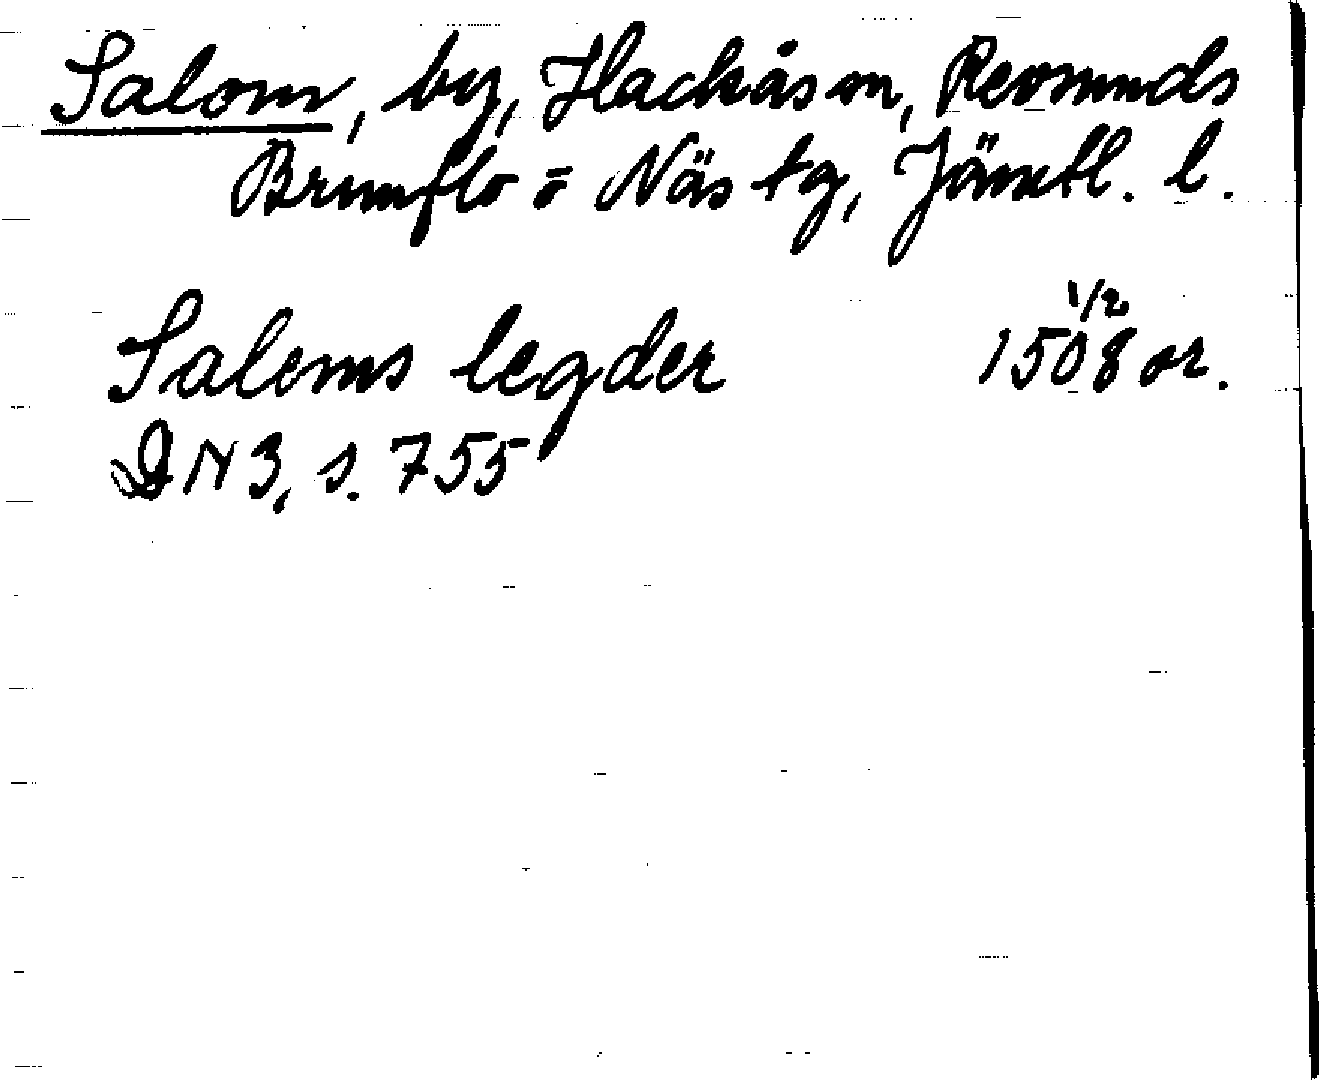 Salom, by, Hackås sn, Revsunds
Brunflo o Näs tg, Jämtl. l.
1/2
Salems legder 1508 or.
DN 3, s. 755